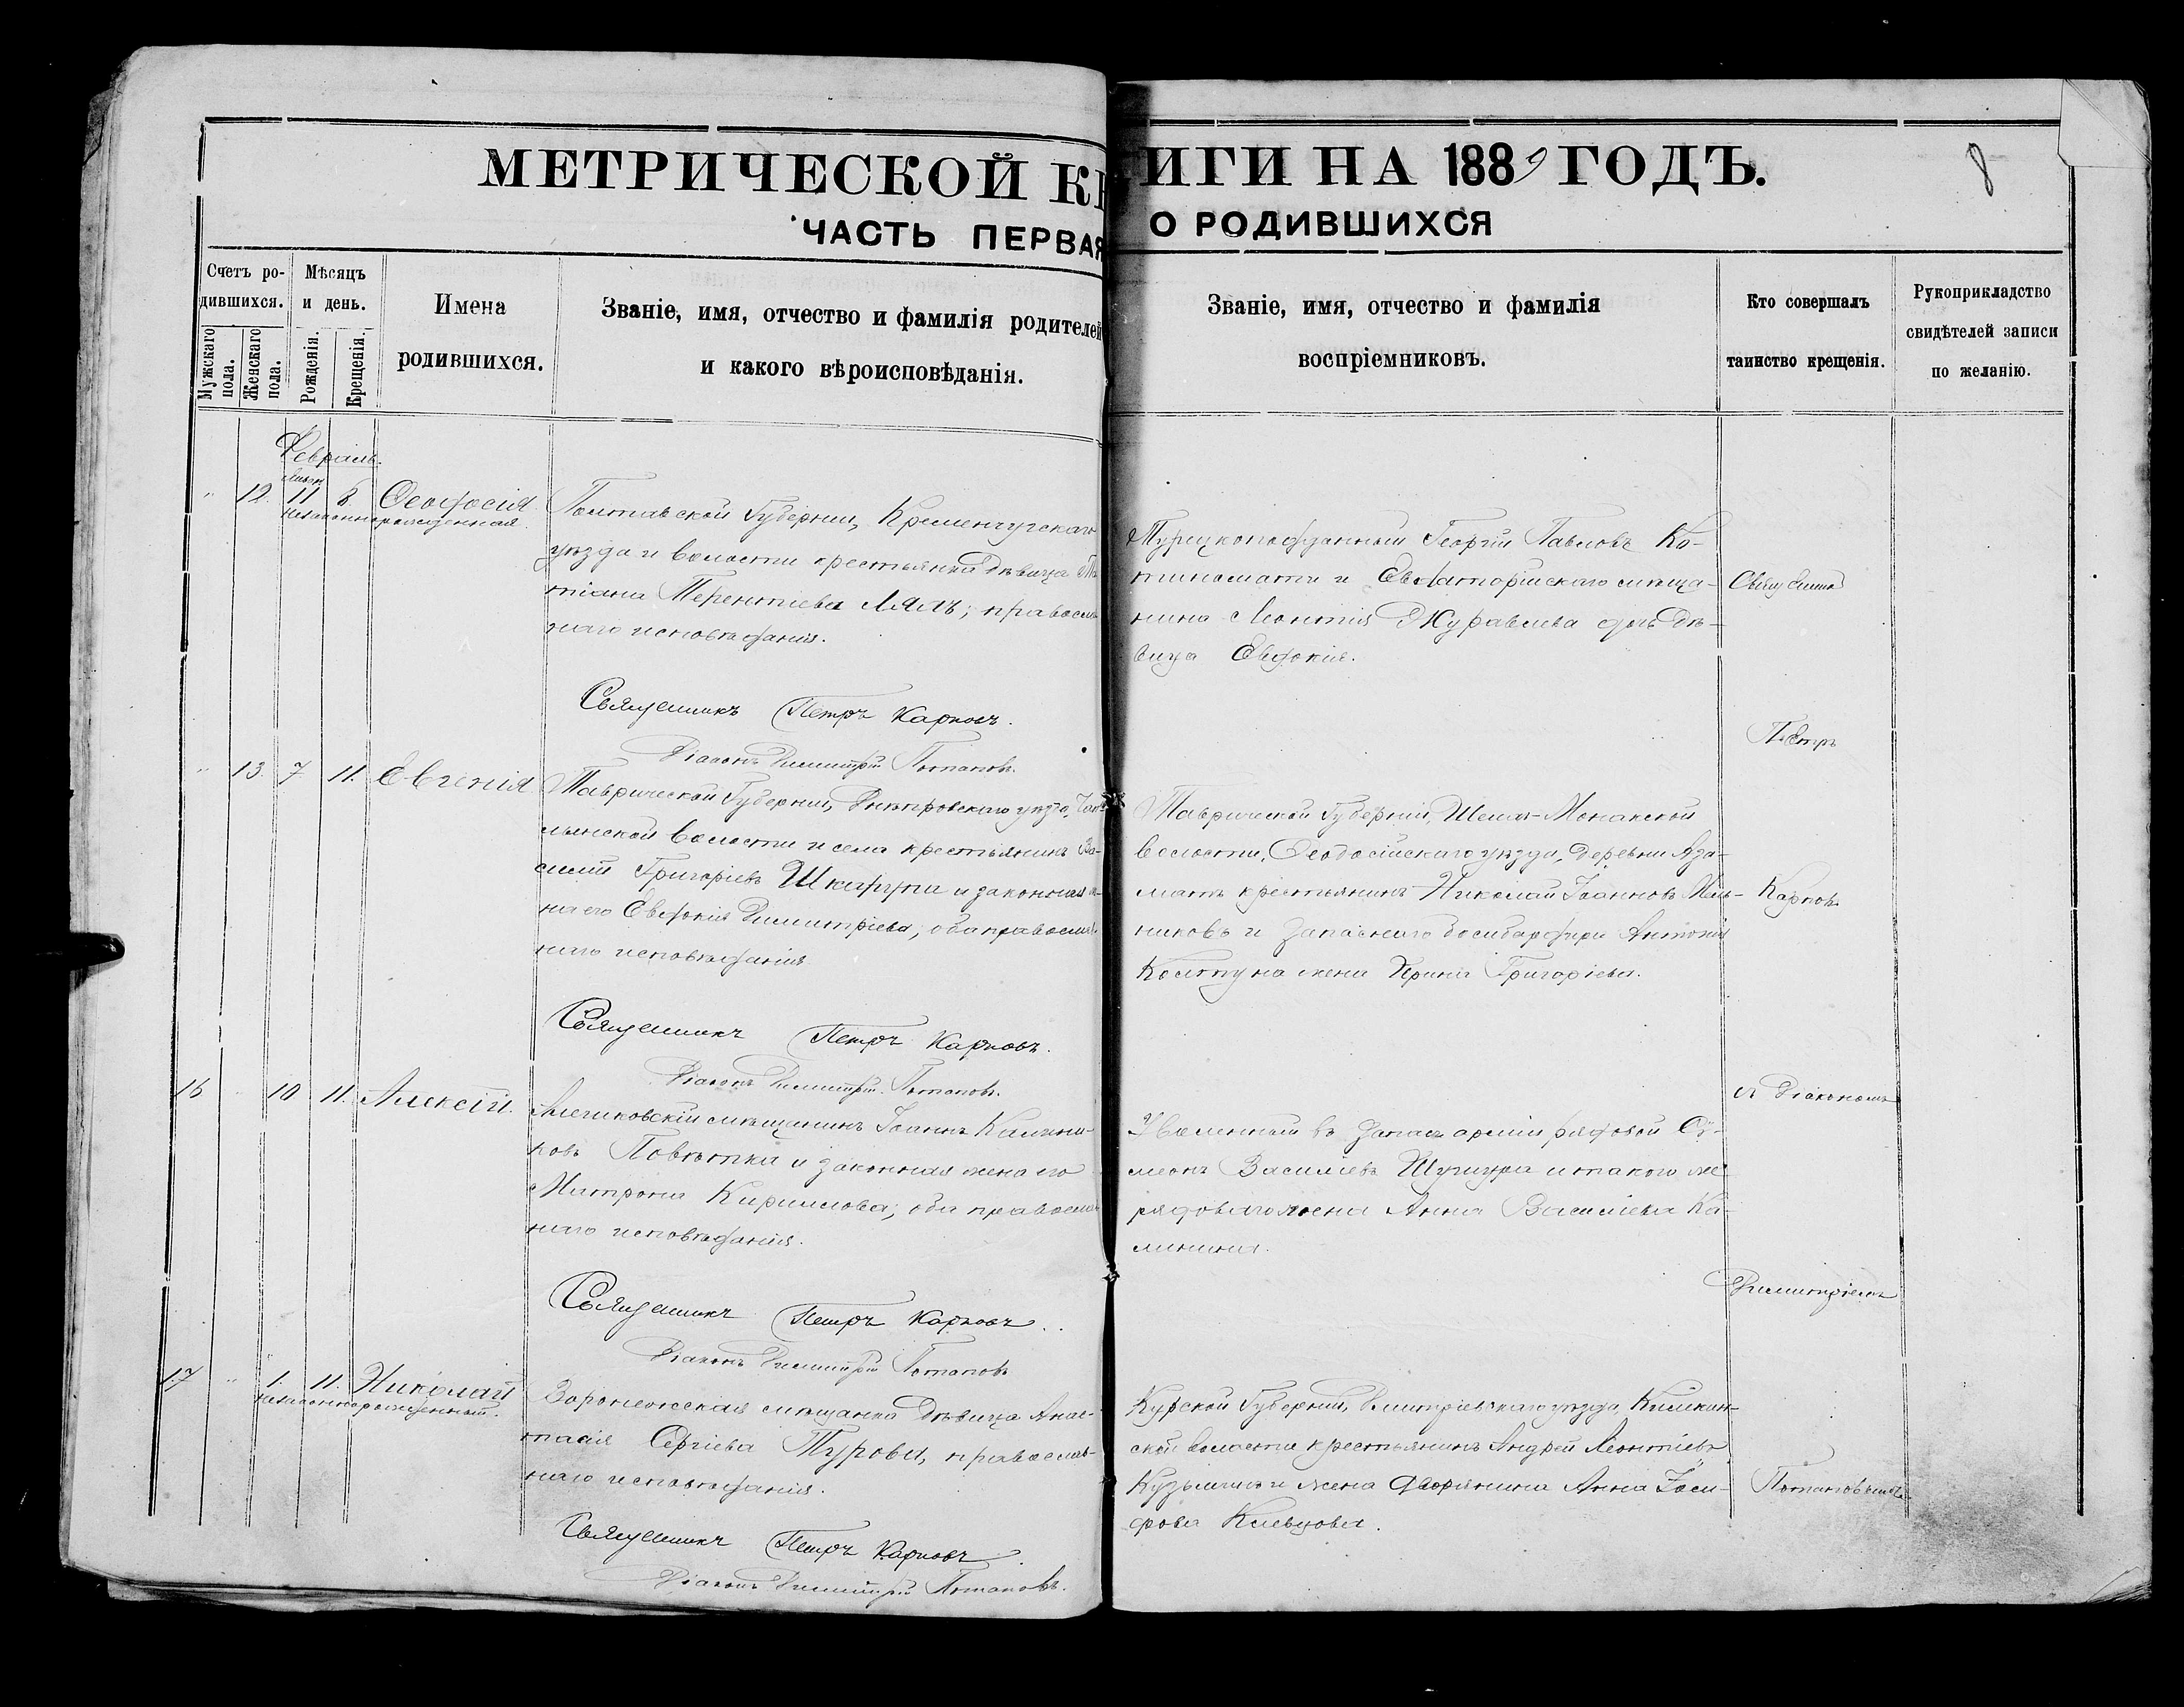 МЕТРИЧЕСКОЙ КНИГИ НА 1889 ГОДЪ.
8
ЧАСТЬ ПЕРВАЯ О РОДИВШИХСЯ
Счетъ родившихся.
Мужскаго пола.
Женскаго пола.
Мѣсяцъ и день.
Рожденія.
Крещенія.
Имена
родившихся.
Званіе, имя, отчество и фамилія родителей
и какого вѣроисповѣданія.
Званіе, имя, отчество и фамилія
воспріемниковъ.
Кто совершалъ
таинство крещенія.
Рукоприкладство
свидѣтелей записи
по желанію.
Февраль.
" 12. 11 8 Ѳеодосія
незаконнорожденная.
Полтавской Губерніи, Кременчугскаго
уѣзда и волости крестьянка дѣвица Та-
тіана Терентіева Лялъ; православ
наго исповѣданія.
Священникъ Петръ Карповъ.
Діаконъ Димитрій Потаповъ.
Турецкоподданный Георгій Павловъ Ко-
и Евпаторійскаго мѣща-
нина Леонтія Журавлева дочь дѣ-
вица Евдокія.
" 13. 7 11. Евгенія
Таврической Губерніи, Днѣпровскаго уѣзда,
волости и села крестьянинъ Ва-
силій Григоріевъ и законная же-
на его Евдокія Димитріева, оба православ
наго исповѣданія
Священникъ Петръ Карповъ.
Діаконъ Димитрій Потаповъ.
Таврической Губерніи, Шейхъ-Монакской
волости, Ѳеодосійскаго уѣзда, деревни Аза-
матъ крестьянинъ Николай Іоанновъ Мель-
никовъ и запаснаго бомбардира Антонія
Колтуна жена Ирина Григоріева.
16 " 10 11. Алексій.
Алешковскій мѣщанинъ Іоаннъ Калини-
ковъ Повѣтка и законная жена его
Матрона Кириллова; оба православ
наго исповѣданія.
Священникъ Петръ Карповъ.
Діаконъ Димитрій Потаповъ
Уволенный въ запасъ арміи рядовой Сѵ-
меонъ Василіевъ и такого же
рядоваго жена Анна Василіева Ка-
линина.
17 " 1. 11. Николай
незаконнорожденный.
Воронежская мѣщанка дѣвица Анас-
тасія Сергіева Турова, православ-
наго исповѣданія.
Священникъ Петръ Карповъ
Діаконъ Димитрій Потаповъ.
Курской Губерніи, Дмитріевскаго уѣзда,
ской волости крестьянинъ Андрей Леонтіевъ
Кузьминъ и жена дворянина Анна Іоси-
фова
Священникъ
Петръ
Карповъ
съ Діакономъ
Димитріемъ
Потаповымъ